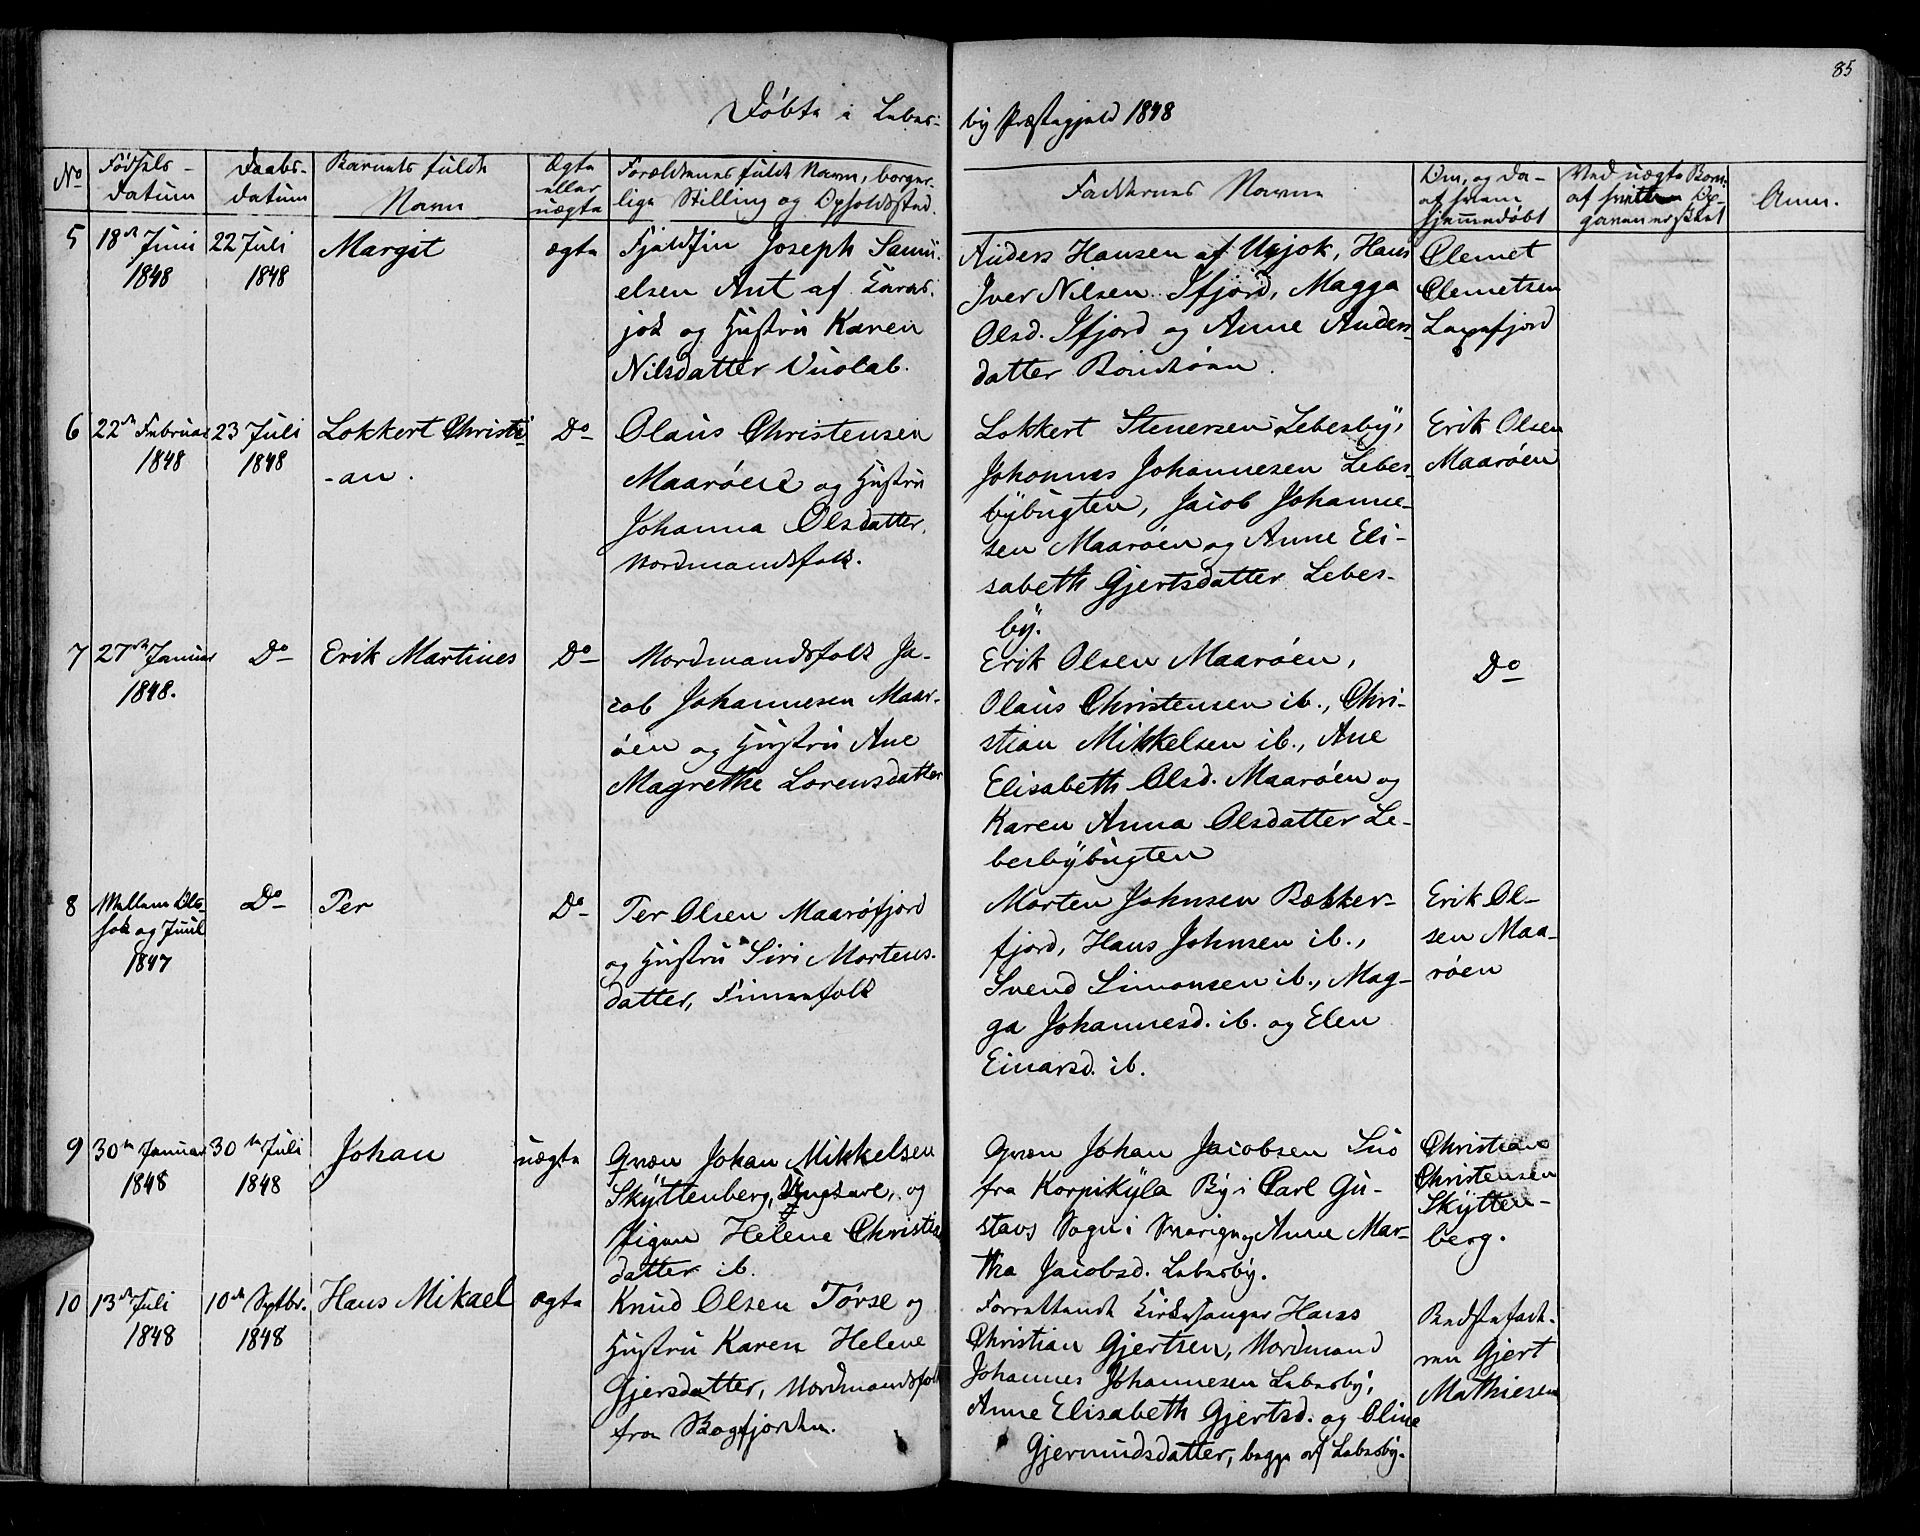 85
Döbte i Lebes-
by Præstegjeld 1848
No
Födsels-
datum
Daabs-
datum
Barnets fulde
Navn
Ægte
eller
uægte
Forældrenes fulde Navn, borger-
lige Stilling og Opholdssted.
Faddernes Navne
Om, og da
af hvem
hjemmedöbt
Ved uægte Börn:
Anm.
5
18de Juni
1848
22 Juli
1848
Margit
ægte
Fjeldfin Joseph Samu-
elsen Ant af Karas-
jok og Hustru Karen
Nilsdatter Vuolab.
Anders Hansen af Utsjok, Hans
Iver Nilsen Ifjord, Magga
Olsd. Ifjord og Anne Anders-
datter
Clemet
Clemetsen
Laxefjord
6
22de Februar
1848
23 Juli
1848
Lokkert Christi-
-an.
Do
Olaus Christensen
Maaröen og Hustru
Johanna Olsdatter,
Nordmandsfolk.
Lokkert Stenersen Lebesby,
Johannes Johannesen Lebes-
bybugten, Jacob Johanne-
sen Maaröen og Anne Eli-
sabeth Gjertsdatter Lebes-
by.
Erik Olsen
Maaröen
7
27de Januar
1848.
Do
Erik Martines
Do
Nordmandsfolk Ja-
cob Johannesen Maar-
öen og Hustru Ane
Magrethe Lorensdatter
Erik Olsen Maaröen,
Olaus Christensen ib., Chri-
stian Mikkelsen ib., Ane
Elisabeth Olsd. Maaröen og
Karen Anna Olsdatter Le-
besbybugten
Do
8
Mellem Ols-
sok og Juul
1847
Do
Per
Do
Per Olsen Maaröfjord
og Hustru Siri Mortens-
datter, Finnefolk
Morten Johnsen Bekker-
fjord, Hans Johnsen ib.,
Svend Simonsen ib., Mag-
ga Johannesd. ib. og Elen
Einarsd. ib.
Erik Ol-
sen Maa-
röen
9
30te Januar
1848
30te Juli
1848
Johan
uægte
Qvæn Johan Mikkelsen
Skyttenberg, Ungkarl, og
Pigen Helene Christi
datter ib.
Qvæn Johan Jacobsen
fra Korpikyla By i Carl Gu-
stavs Sogn i Sverige og Anne Mar-
tha Jacobsd. Lebesby.
Christian
Christensen
Skytten-
berg.
10
13de Juli
1848
10de Septbr.
1848
Hans Mikael
ægte
Knud Olsen Törse og
Hustru Karen Helene
Gjersdatter, Nordmandsfolk
fra Bogfjorden.
Forrettende Kirkesanger Hans
Christian Gjertsen, Nordmand
Johannes Johannesen Lebesby,
Anne Elisabeth Gjertsd. og Oline
Gjermundsdatter, begge af Lebesby.
Bedstefade-
ren Gjert
Mathiesen